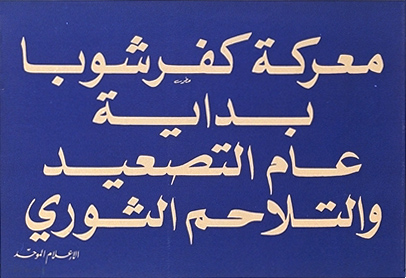 معركة كفرشوبا
بداية
عام التصعيد
والتلاحم الثوري
الإعلام الموحد